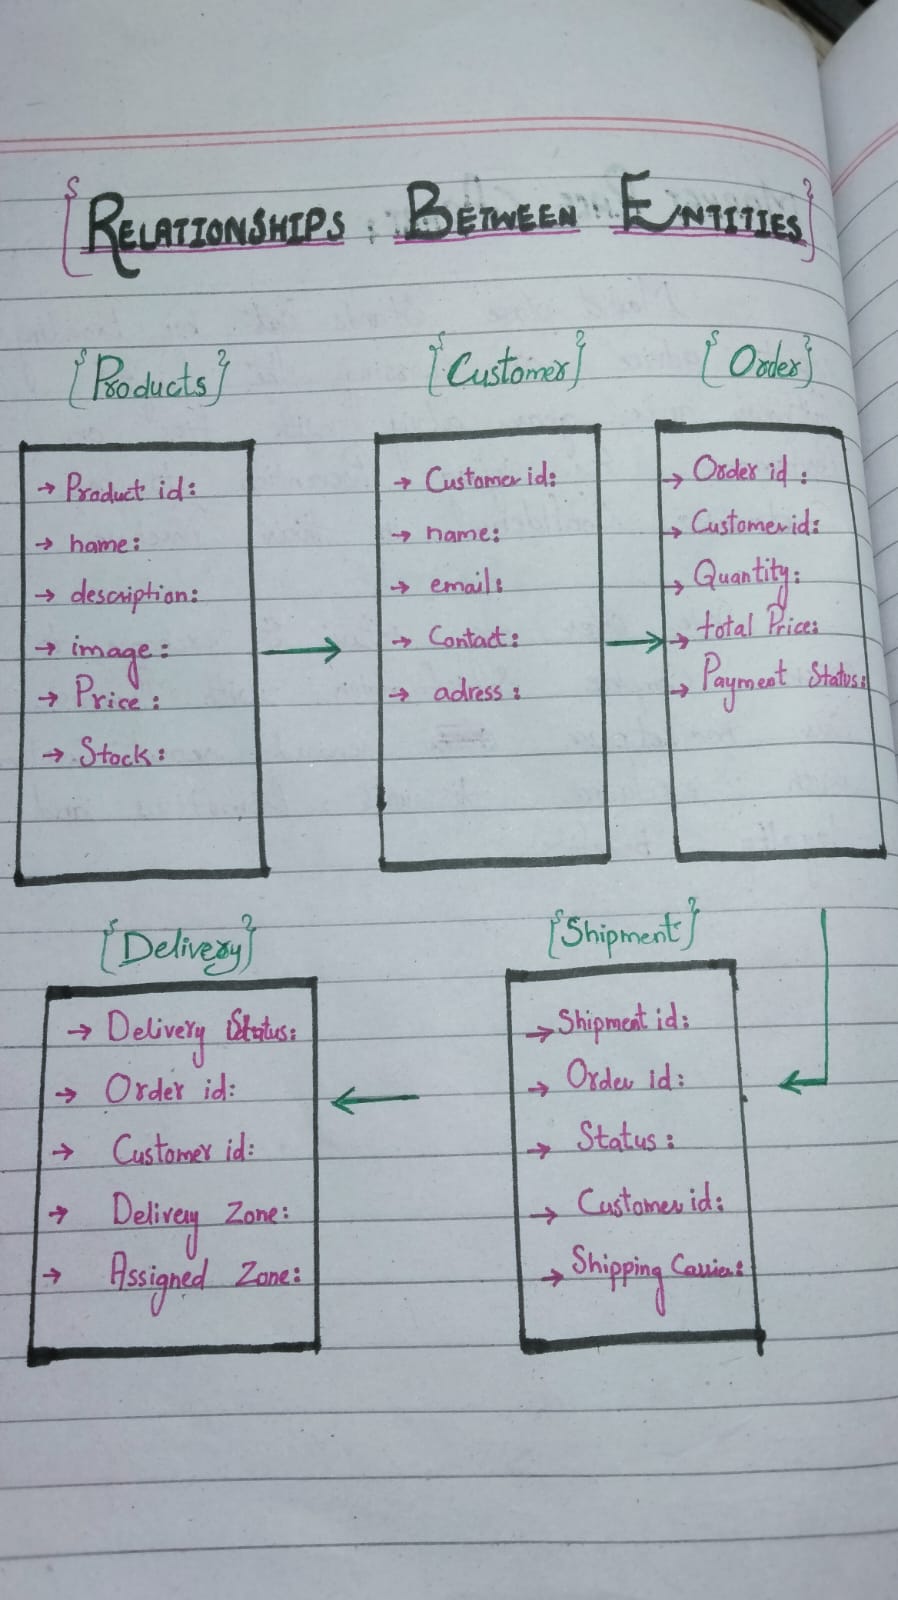 {RELATIONSHIPS : BETWEEN ENTITIES}
{Products}
→ Product id:
→ name:
→ description:
→ image:
→ Price:
→ Stock:
{Customer}
→ Customer id:
→ name:
→ email:
→ Contact:
→ adress:
{Order}
→ Order id:
→ Customer id:
→ Quantity:
→ total Price:
→ Payment Status:
{Delivery}
→ Delivery Status:
→ Order id:
→ Customer id:
→ Delivery Zone:
→ Assigned Zone:
{Shipment}
→ Shipment id:
→ Order id:
→ Status:
→ Customer id:
→ Shipping Carrier: